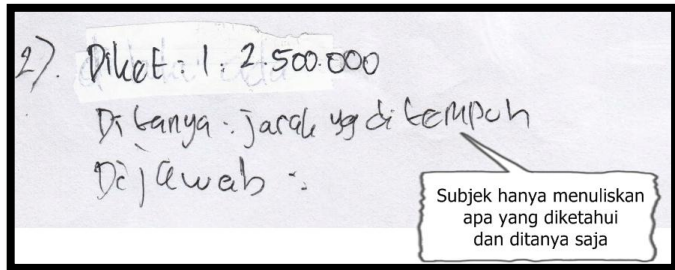 2). Diket : 1 : 2.500.000
Ditanya : jarak yg di tempuh
Dijawab :
Subjek hanya menuliskan
apa yang diketahui
dan ditanya saja